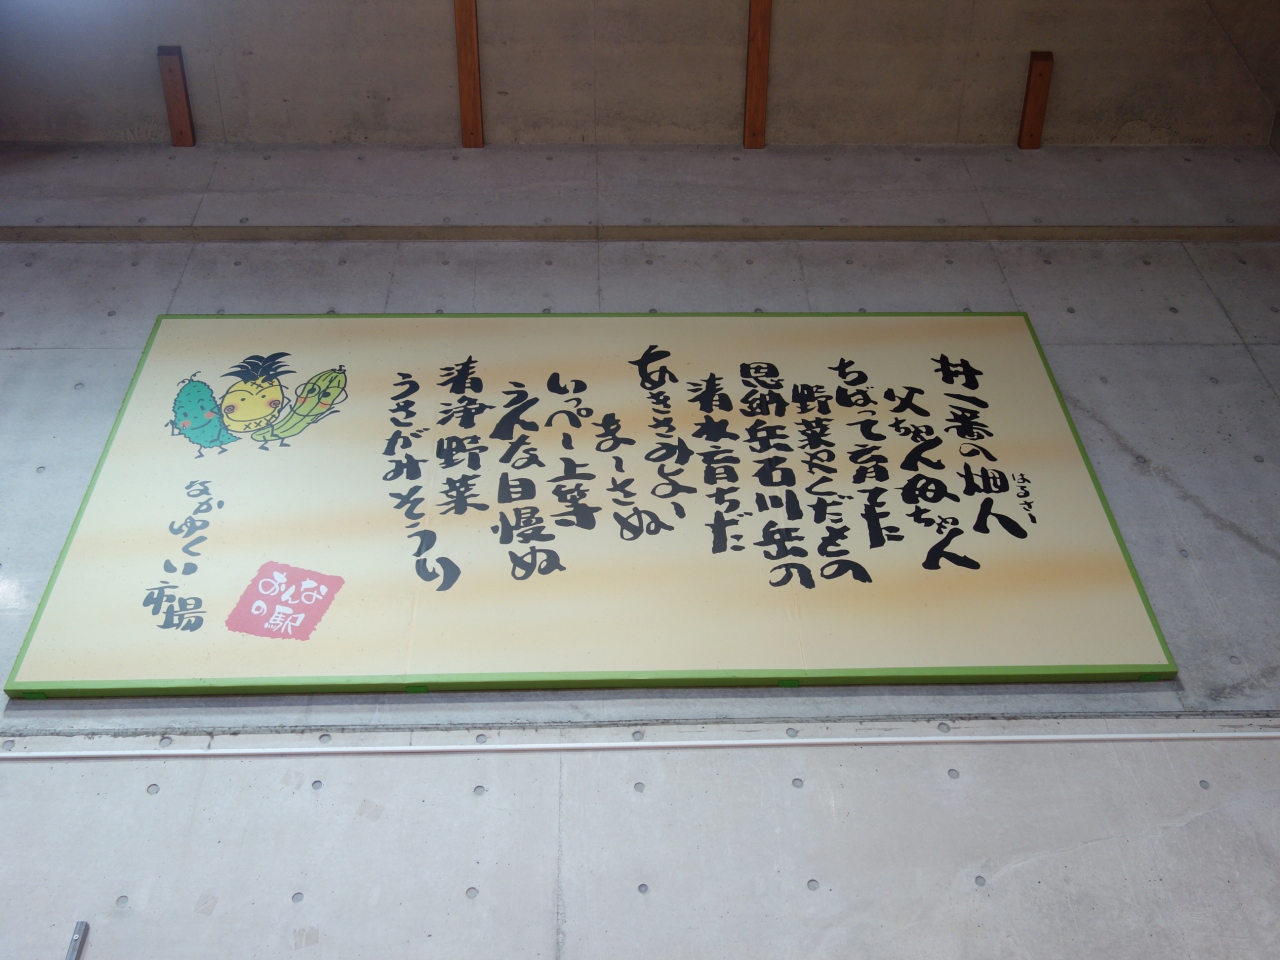 村一番の畑人
はるさー
父ちゃん母ちゃん
ちばって育てた
野菜やくだもの
恩納岳石川岳の
清水育ちだ
あきさみよ〜
ま〜さぬ
いっぺ〜上等
うんな自慢ぬ
清浄野菜
うさがみそうり
なかゆくい市場
おんな
の駅